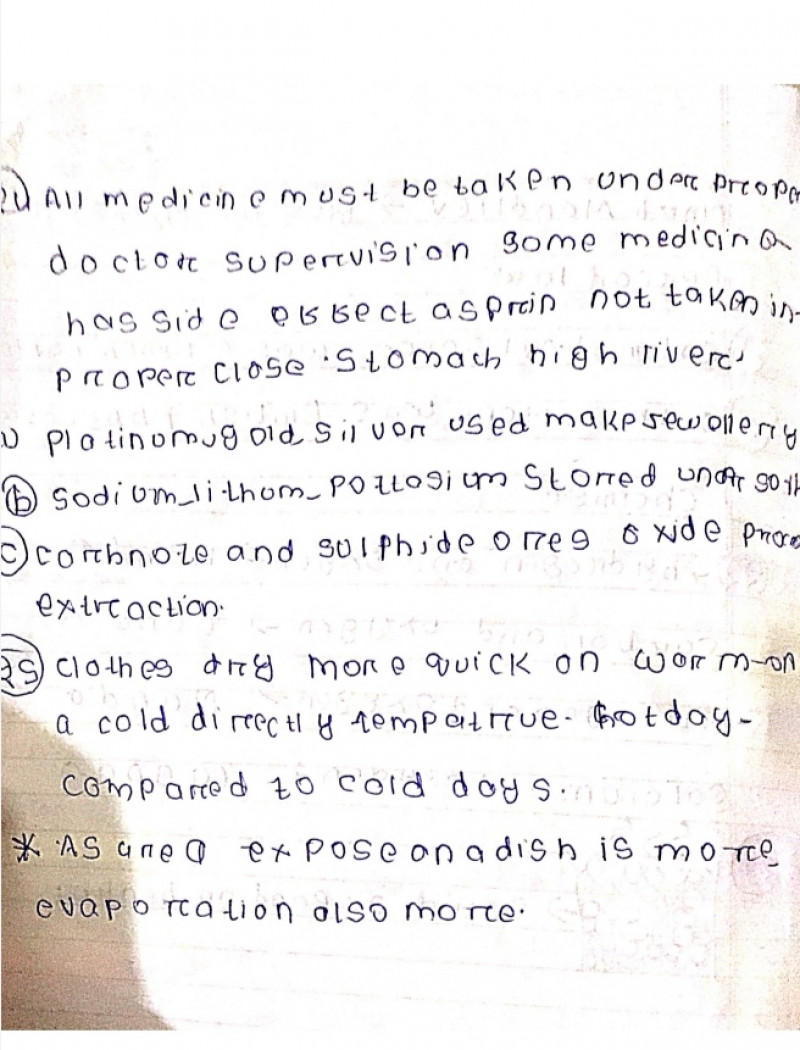 24) All medicin e must be taken under proper
doctor supervision some medicin a
has side effect asprin not taken in-
proper close. Stomach high river,
1) platinum, gold, silvor used make jewollery
(b) sodium_lithum_pottosium storred under
(c) corbnote and sulphide orres oxide
extraction.
25) clothes dry more quick on worm-on
a cold directly tempatrue. hotday-
compared to cold days.
* As area expose an a dish is more
evaporation also more.